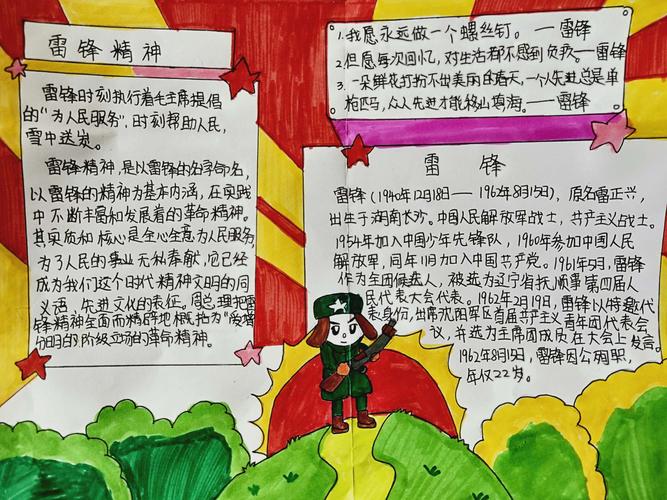 雷锋精神
雷锋时刻执行着毛主席提倡
的“为人民服务”,时刻帮助人民,
雪中送炭。
雷锋精神,是以雷锋的名字命名,
以雷锋的精神为基本内涵,在实践
中不断丰富和发展着的革命精神。
其实质和核心是全心全意为人民服务,
为了人民的事业无私奉献,它已经
成为我们这个时代精神文明的同
义语、先进文化的表征。周总理把雷
锋精神全面而精辟地概括为“爱憎
分明的阶级立场的革命精神。
1.我愿永远做一个螺丝钉。——雷锋
2.但愿每次回忆,对生活都不感到负疚。—雷锋
3.一朵鲜花打扮不出美丽的春天,一个人先进总是单
枪匹马,众人先进才能移山填海。——雷锋
雷锋
雷锋(1940年12月18日——1962年8月15日),原名雷正兴,
出生于湖南长沙。中国人民解放军战士,共产主义战士。
1954年加入中国少年先锋队,1960年参加中国人民
解放军,同年11月加入中国共产党。1961年5月,雷锋
作为全团候选人,被选为辽宁省抚顺市第四届人
民代表大会代表。1962年2月19日,雷锋以特邀代
表身份,出席沈阳军区首届共产主义青年团代表会
议,并选为主席团成员在大会上发言。
1962年8月15日,雷锋因公殉职,
年仅22岁。